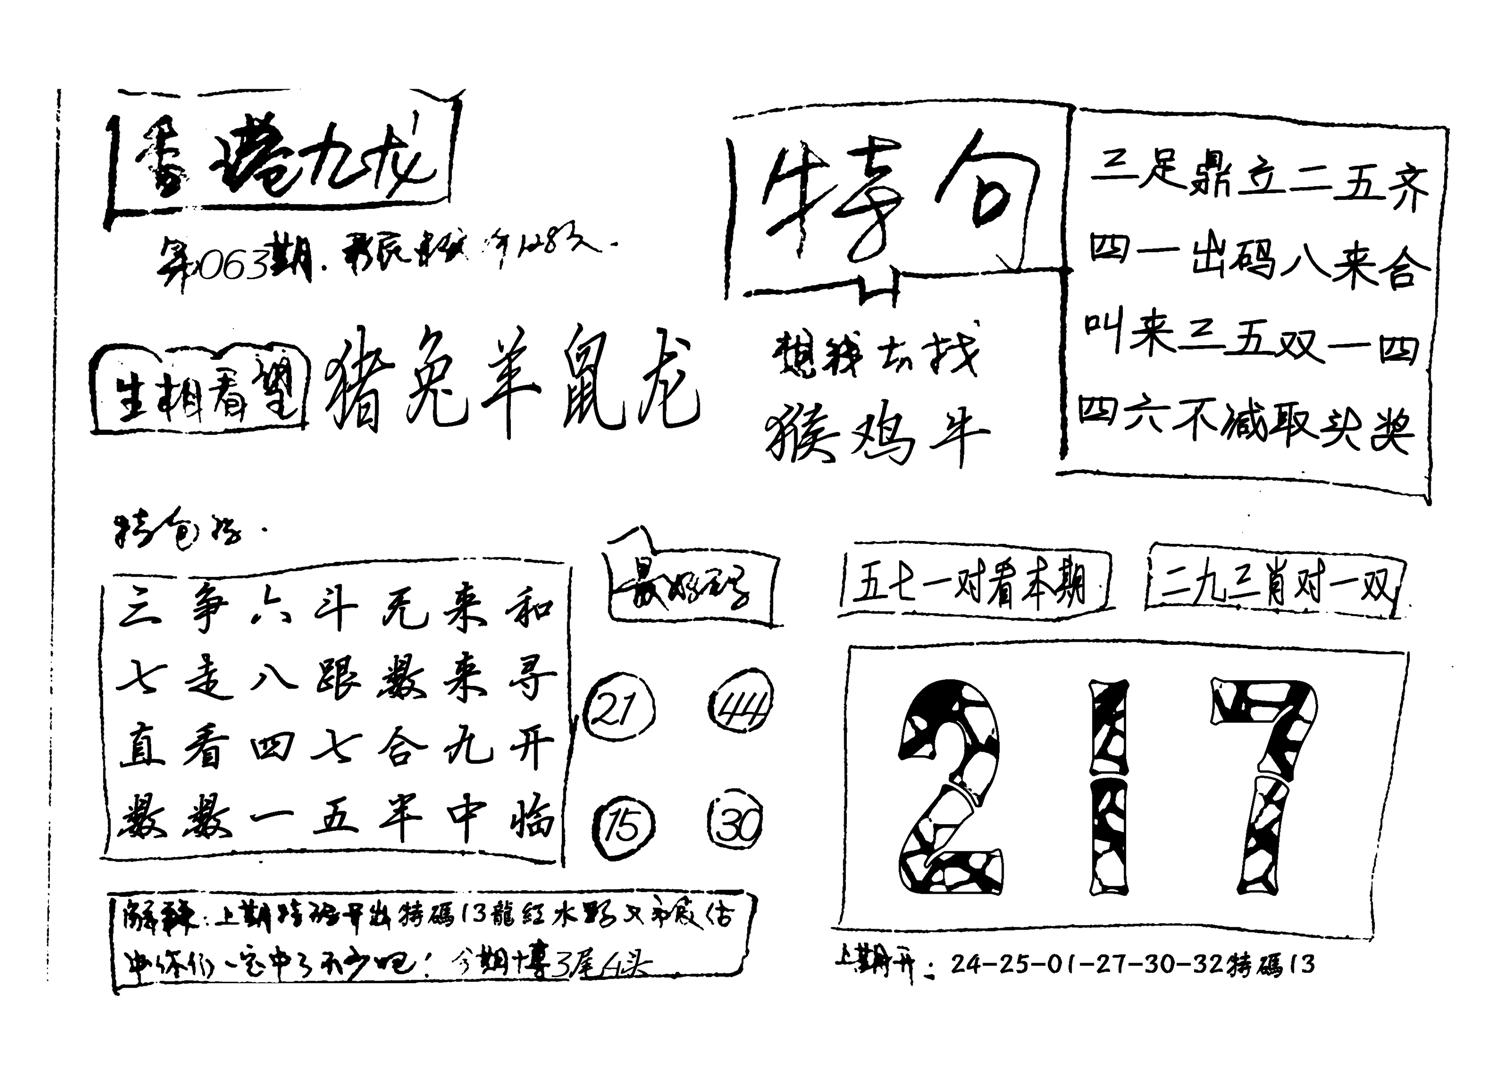 香港九龙
第063期.
生相看望
猪兔羊鼠龙
特句
想钱去找
猴鸡牛
三足鼎立二五齐
四一出码八来合
叫来三五双一四
四六不减取头奖
三争六斗无来和
七走八跟数来寻
直看四七合九开
数数一五牢中临
最好码
21 44
15 30
五七一对看本期
二九三肖对一双
217
解释:上期特码开出特碼13龍红水
一定中了不少吧!今期博3尾4头
上期开:24-25-01-27-30-32特碼13